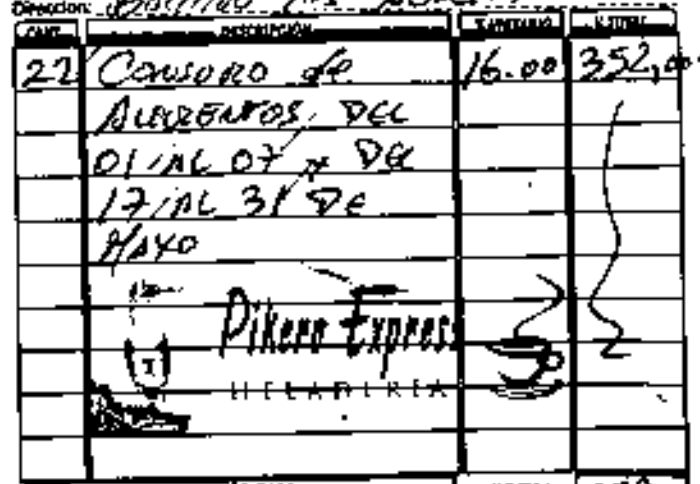 Dirección:
CANT. DESCRIPCIÓN V. UNITARIO V. TOTAL
22 Consumo de 16.00 352,00
Alimentos, DEL
01 AL 07 y DEL
17 AL 31 DE
MAYO
Pikeno Express
HELADERIA